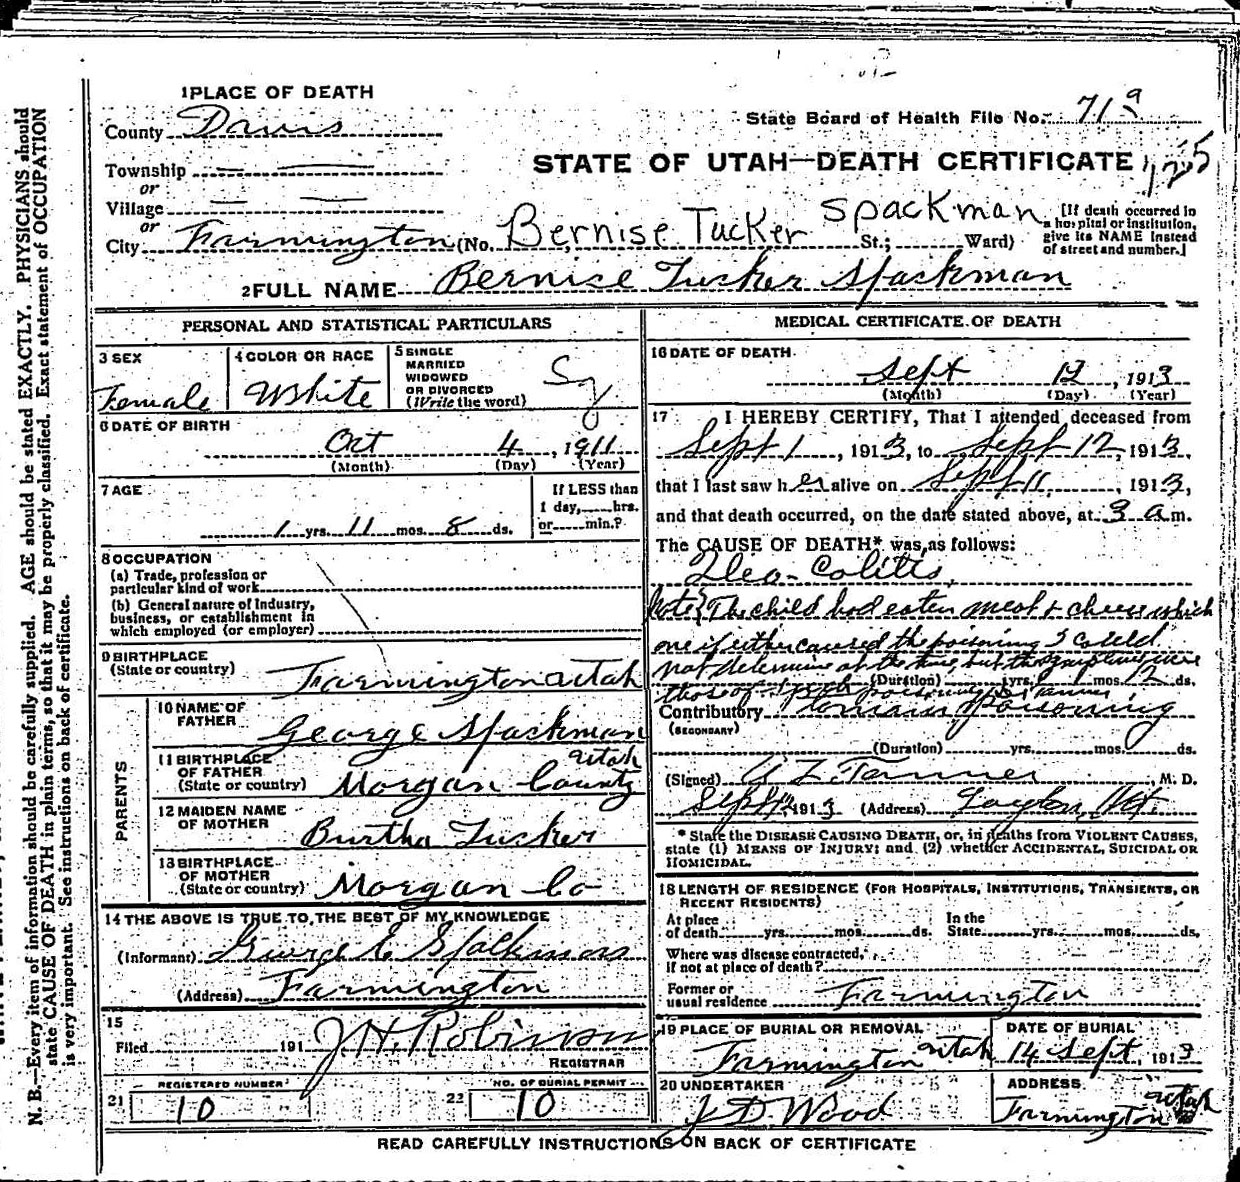 1 PLACE OF DEATH
County Davis
Township
or
Village
or
City Farmington (No. Bernise Tucker Spackman St.; Ward)
[If death occurred in a hospital or institution, give its NAME instead of street and number.]
State Board of Health File No. 71 a
STATE OF UTAH—DEATH CERTIFICATE 125
2 FULL NAME Bernice Tucker Spackman
PERSONAL AND STATISTICAL PARTICULARS
3 SEX
Female
4 COLOR OR RACE
White
5 SINGLE
MARRIED
WIDOWED
OR DIVORCED
(Write the word)
Sg
6 DATE OF BIRTH
Oct 4, 1911
(Month) (Day) (Year)
7 AGE
1 yrs. 11 mos. 8 ds.
If LESS than
1 day, hrs.
or min.?
8 OCCUPATION
(a) Trade, profession or
particular kind of work
(b) General nature of Industry,
business, or establishment in
which employed (or employer)
9 BIRTHPLACE
(State or country) Farmington Utah
PARENTS
10 NAME OF
FATHER George Spackman
11 BIRTHPLACE
OF FATHER
(State or country) Morgan County Utah
12 MAIDEN NAME
OF MOTHER Burtha Tucker
13 BIRTHPLACE
OF MOTHER
(State or country) Morgan Co
14 THE ABOVE IS TRUE TO THE BEST OF MY KNOWLEDGE
(Informant) George E Spackman
(Address) Farmington
15
Filed 191 J. H. Robinson
REGISTRAR
REGISTERED NUMBER
21 10
NO. OF BURIAL PERMIT
22 10
MEDICAL CERTIFICATE OF DEATH
16 DATE OF DEATH
Sept 12, 1913
(Month) (Day) (Year)
17 I HEREBY CERTIFY, That I attended deceased from
Sept 1, 1913, to Sept 12, 1913,
that I last saw her alive on Sept 11, 1913,
and that death occurred, on the date stated above, at 3 a m.
The CAUSE OF DEATH* was as follows:
Ileo-Colitis,
Note} The child had eaten meat & cheese which
one if either caused the poisoning I could
not determine at the time, but the symptoms were
(Duration) yrs. mos. 12 ds.
those of poisoning
Contributory Ptomaine poisoning
(SECONDARY)
(Duration) yrs. mos. ds.
(Signed) A Z Tanner, M. D.
Sept 12 1913 (Address) Layton, Ut.
* State the DISEASE CAUSING DEATH, or, in deaths from VIOLENT CAUSES,
state (1) MEANS OF INJURY; and (2) whether ACCIDENTAL, SUICIDAL OR
HOMICIDAL.
18 LENGTH OF RESIDENCE (FOR HOSPITALS, INSTITUTIONS, TRANSIENTS, OR
RECENT RESIDENTS)
At place
of death yrs. mos. ds.
In the
State yrs. mos. ds.
Where was disease contracted,
if not at place of death?
Former or
usual residence Farmington
19 PLACE OF BURIAL OR REMOVAL
Farmington Utah
DATE OF BURIAL
14 Sept, 1913
20 UNDERTAKER
J D. Wood
ADDRESS
Farmington Utah
READ CAREFULLY INSTRUCTIONS ON BACK OF CERTIFICATE
N. B.—Every item of information should be carefully supplied. AGE should be stated EXACTLY. PHYSICIANS should
state CAUSE OF DEATH in plain terms, so that it may be properly classified. Exact statement of OCCUPATION
is very important. See instructions on back of certificate.